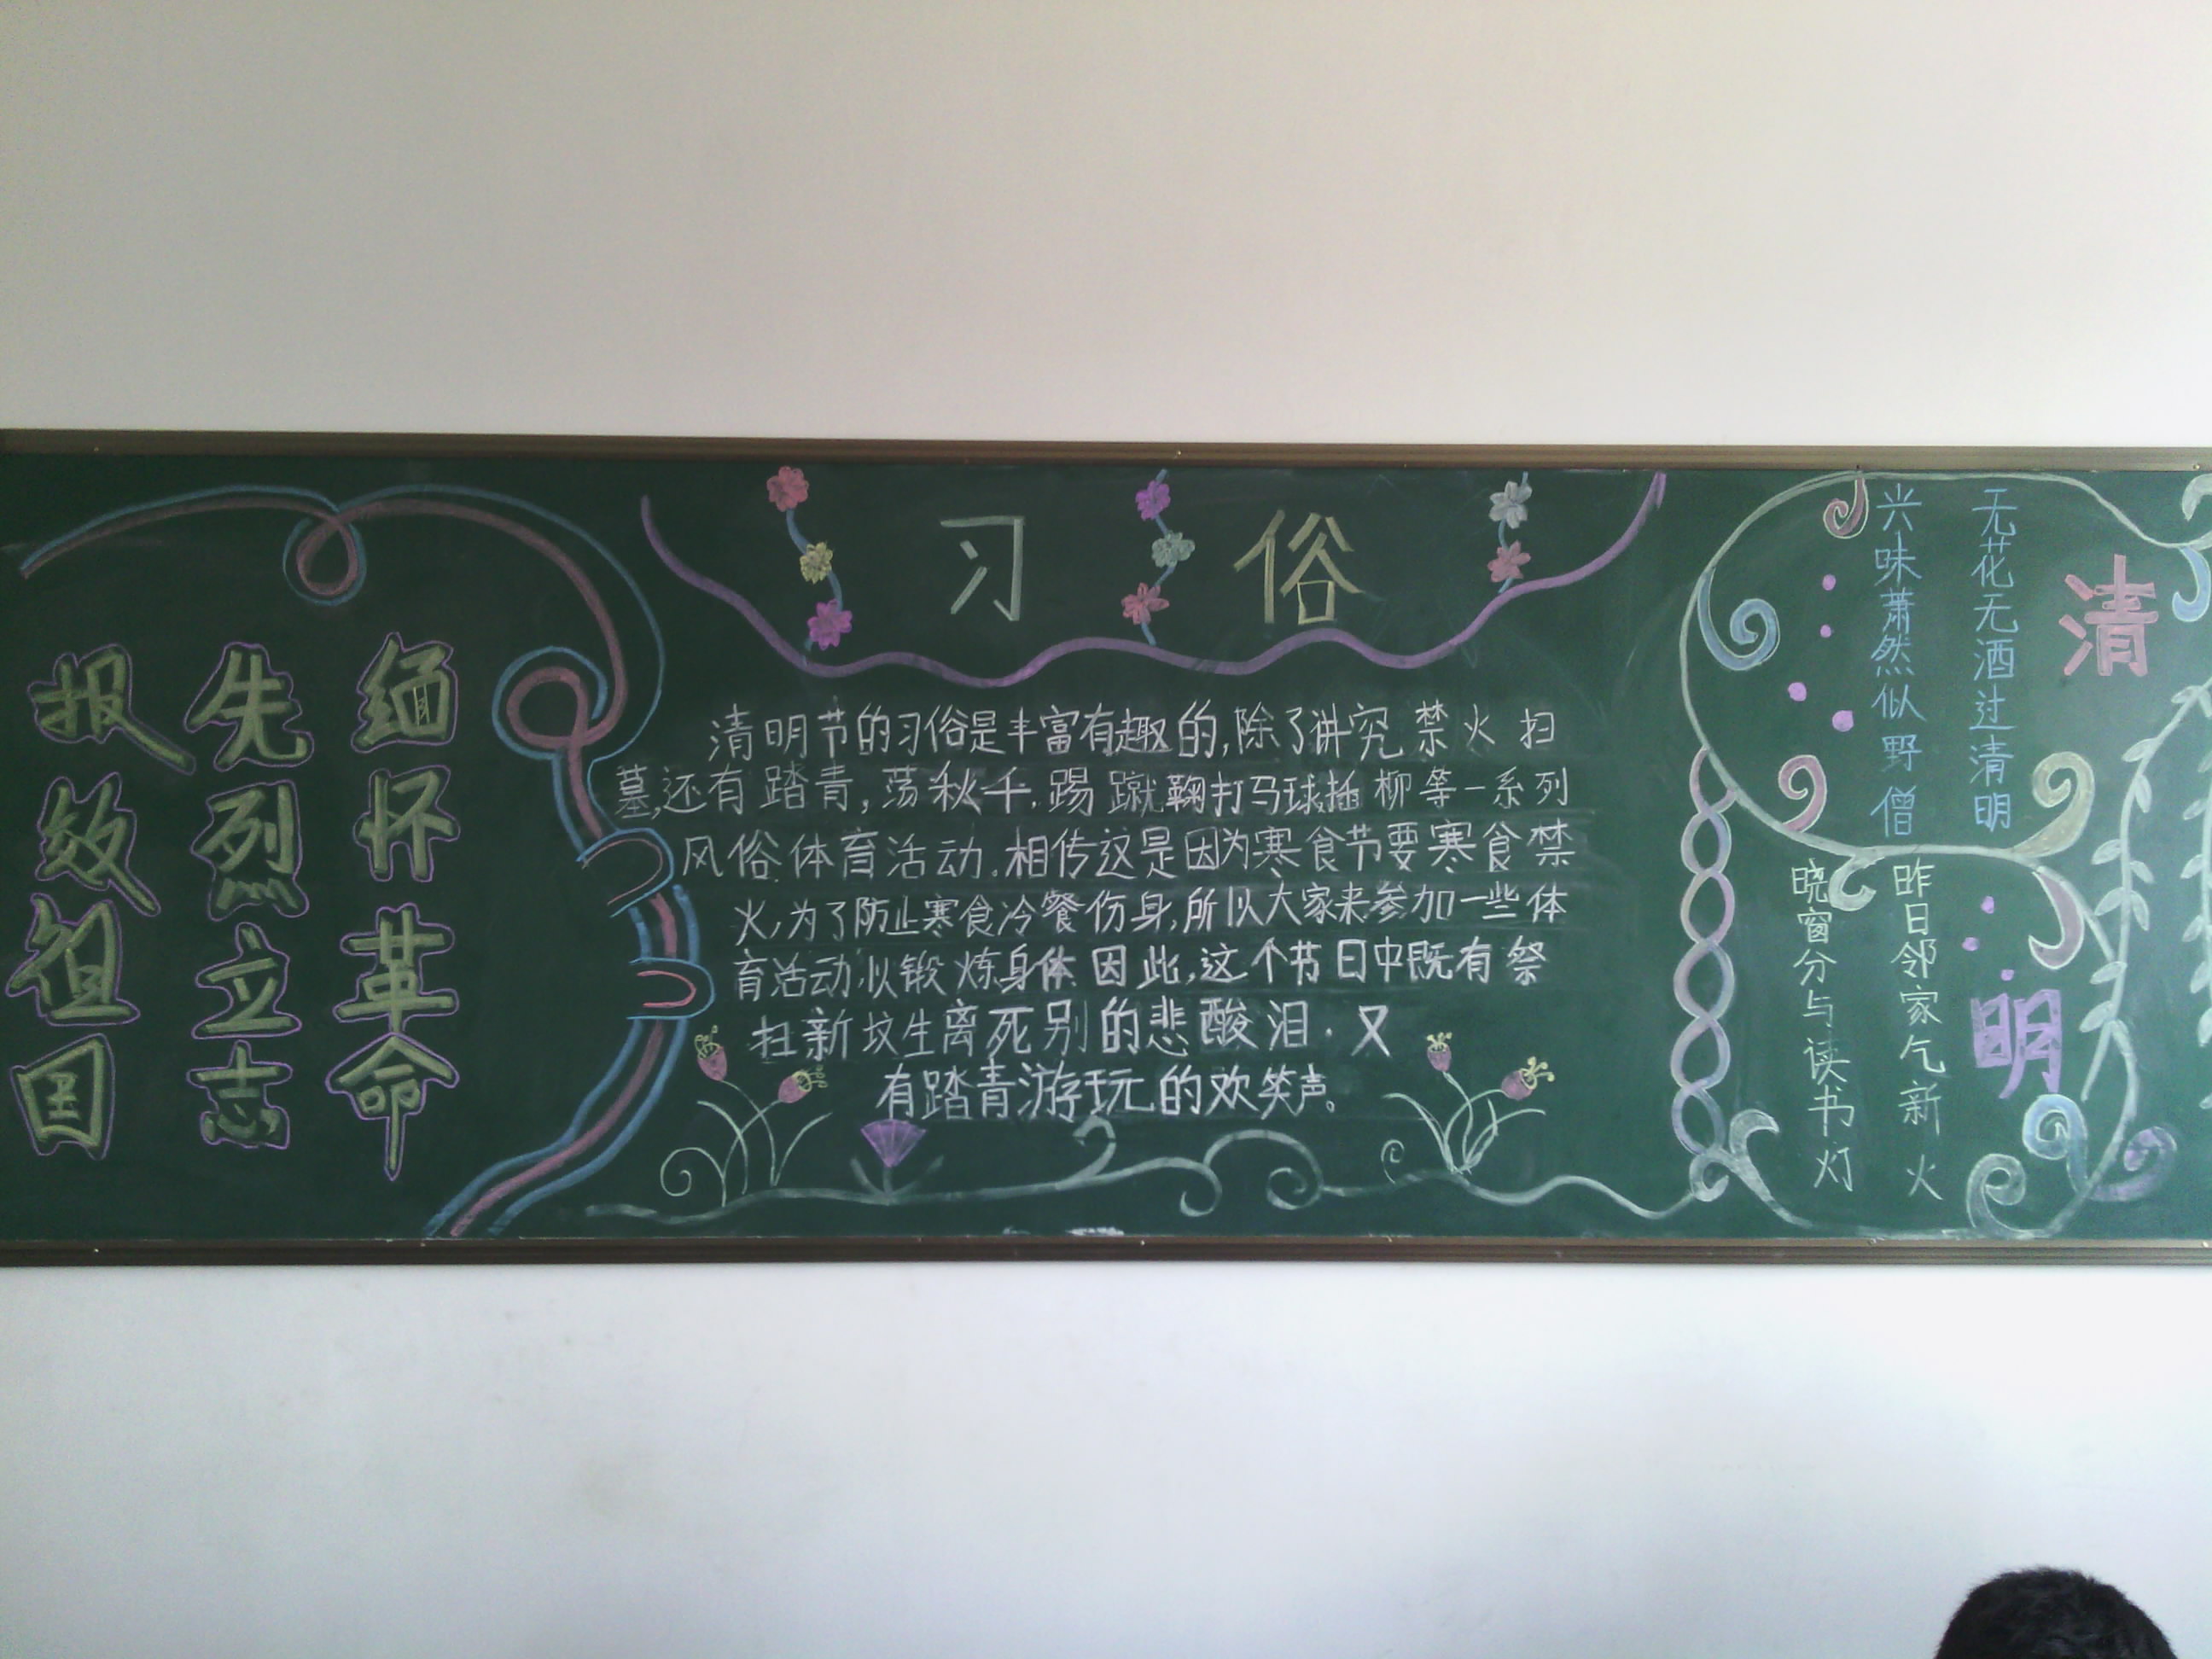 缅怀革命
先烈立志
报效祖国
习俗
清明节的习俗是丰富有趣的,除了讲究禁火扫
墓,还有踏青,荡秋千.踢蹴鞠打马球插柳等一系列
风俗体育活动.相传这是因为寒食节要寒食禁
火,为了防止寒食冷餐伤身,所以大家来参加一些体
育活动,以锻炼身体因此,这个节日中既有祭
扫新坟生离死别的悲酸泪.又
有踏青游玩的欢笑声。
清明
无花无酒过清明
兴味萧然似野僧
昨日邻家气新火
晓窗分与读书灯